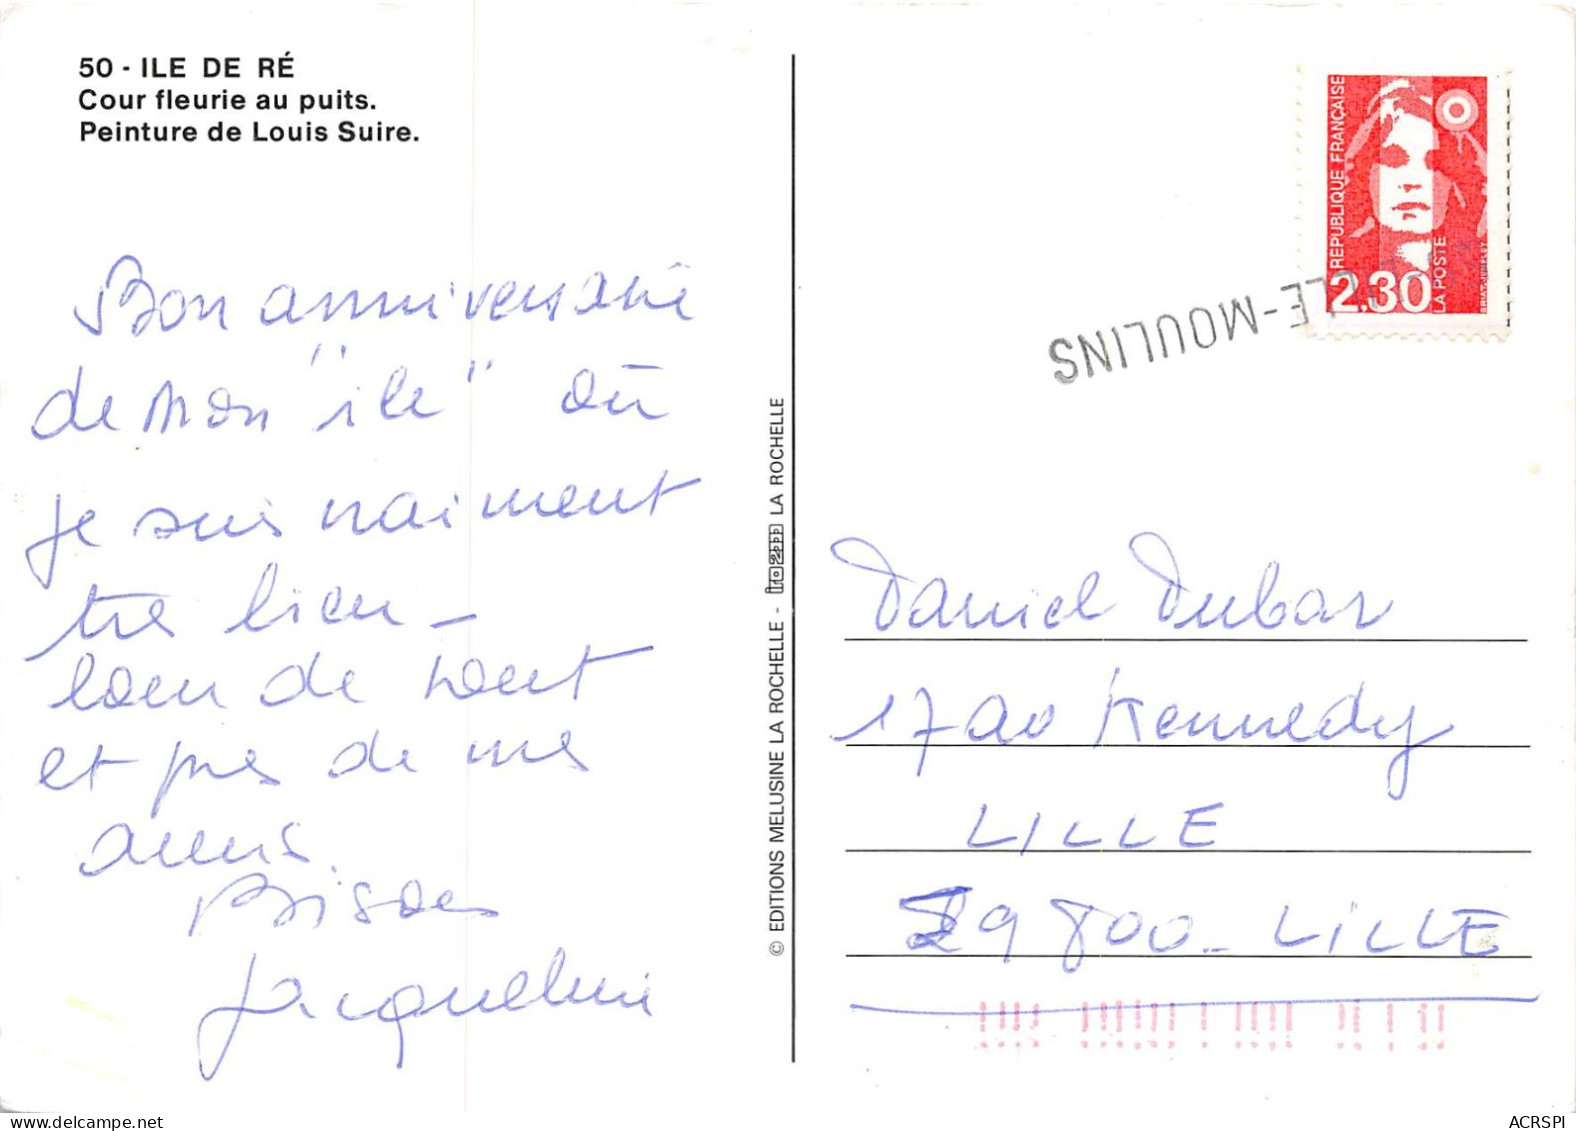 50 - ILE DE RÉ
Cour fleurie au puits.
Peinture de Louis Suire.
Bon anniversaire
de mon "ile" où
je suis vraiment
très bien -
loin de tout
et près de mes
amis.
Bises
Jacqueline
© EDITIONS MELUSINE LA ROCHELLE - LA ROCHELLE
RÉPUBLIQUE FRANÇAISE
2,30
LA POSTE
LE-MOULINS
Daniel Dubar
17 av Kennedy
LILLE
59800 - LILLE
ACRSPI